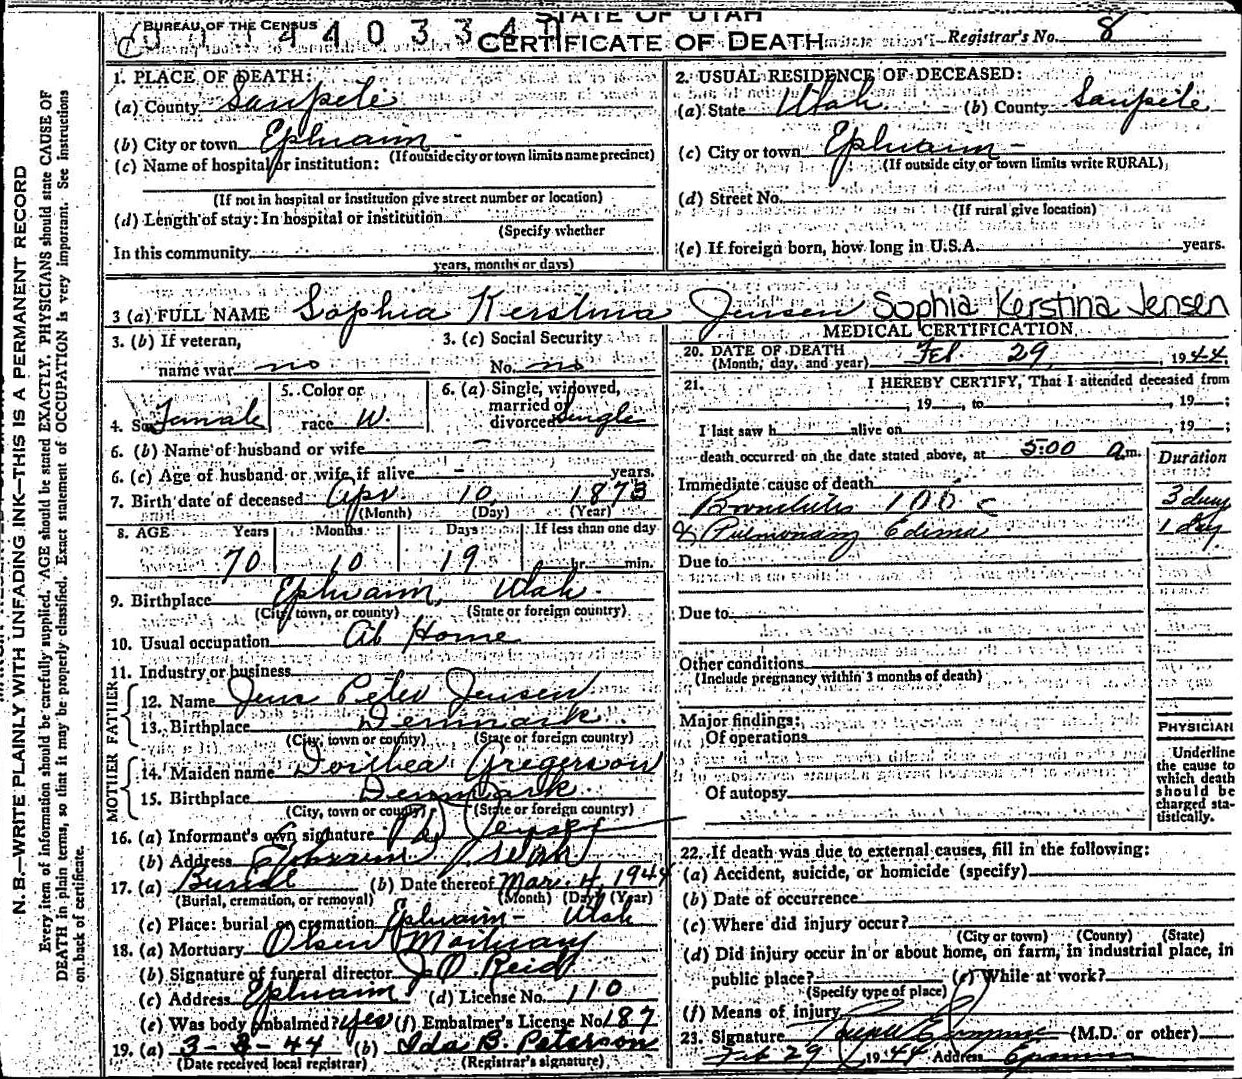 STATE OF UTAH
BUREAU OF THE CENSUS
CERTIFICATE OF DEATH
Registrar's No. 8
1. PLACE OF DEATH:
(a) County Sanpete
(b) City or town Ephraim -
(If outside city or town limits name precinct)
(c) Name of hospital or institution:
(If not in hospital or institution give street number or location)
(d) Length of stay: In hospital or institution
(Specify whether
In this community
years, months or days)
2. USUAL RESIDENCE OF DECEASED:
(a) State Utah (b) County Sanpete
(c) City or town Ephraim -
(If outside city or town limits write RURAL)
(d) Street No.
(If rural give location)
(e) If foreign born, how long in U.S.A. years.
3 (a) FULL NAME Sophia Kerstina Jensen Sophia Kerstina Jensen
3. (b) If veteran, 3. (c) Social Security
name war no No. no
4. Sex Female 5. Color or race W. 6. (a) Single, widowed, married or divorced Single
6. (b) Name of husband or wife -
6. (c) Age of husband or wife, if alive - years.
7. Birth date of deceased Apr 10 1873
(Month) (Day) (Year)
8. AGE Years Months Days If less than one day
70 10 19 hr. min.
9. Birthplace Ephraim, Utah.
(City, town, or county) (State or foreign country)
10. Usual occupation At Home
11. Industry or business
FATHER
12. Name Jens Peter Jensen
13. Birthplace Denmark.
(City, town or county) (State or foreign country)
MOTHER
14. Maiden name Dorthea Gregerson
15. Birthplace Denmark.
(City, town or county) (State or foreign country)
16. (a) Informant's own signature Jensen
(b) Address Ephraim Utah
17. (a) Burial (b) Date thereof Mar. 4, 1944
(Burial, cremation, or removal) (Month) (Day) (Year)
(c) Place: burial or cremation Ephraim - Utah
18. (a) Mortuary Olsen Mortuary
(b) Signature of funeral director J. O. Reid
(c) Address Ephraim (d) License No. 110
(e) Was body embalmed? yes (f) Embalmer's License No. 187
19. (a) 3-3-44 (b) Ida B. Peterson
(Date received local registrar) (Registrar's signature)
MEDICAL CERTIFICATION
20. DATE OF DEATH
(Month, day, and year) Feb 29, 1944.
21. I HEREBY CERTIFY, That I attended deceased from
, 19 , to , 19 ;
I last saw h alive on , 19 ;
death occurred on the date stated above, at 5:00 a m.
Duration
Immediate cause of death
Bronchitis 106 c 3 days
& Pulmonary Edema 1 day
Due to
Due to
Other conditions
(Include pregnancy within 3 months of death)
Major findings:
Of operations
Of autopsy
PHYSICIAN
Underline
the cause to
which death
should be
charged sta-
tistically.
22. If death was due to external causes, fill in the following:
(a) Accident, suicide, or homicide (specify)
(b) Date of occurrence
(c) Where did injury occur?
(City or town) (County) (State)
(d) Did injury occur in or about home, on farm, in industrial place, in
public place? (e) While at work?
(Specify type of place)
(f) Means of injury
23. Signature (M.D. or other)
Feb 29 1944 Address Ephraim
N. B.—WRITE PLAINLY WITH UNFADING INK—THIS IS A PERMANENT RECORD
Every item of information should be carefully supplied. AGE should be stated EXACTLY. PHYSICIANS should state CAUSE OF
DEATH in plain terms, so that it may be properly classified. Exact statement of OCCUPATION is very important. See Instructions
on back of certificate.